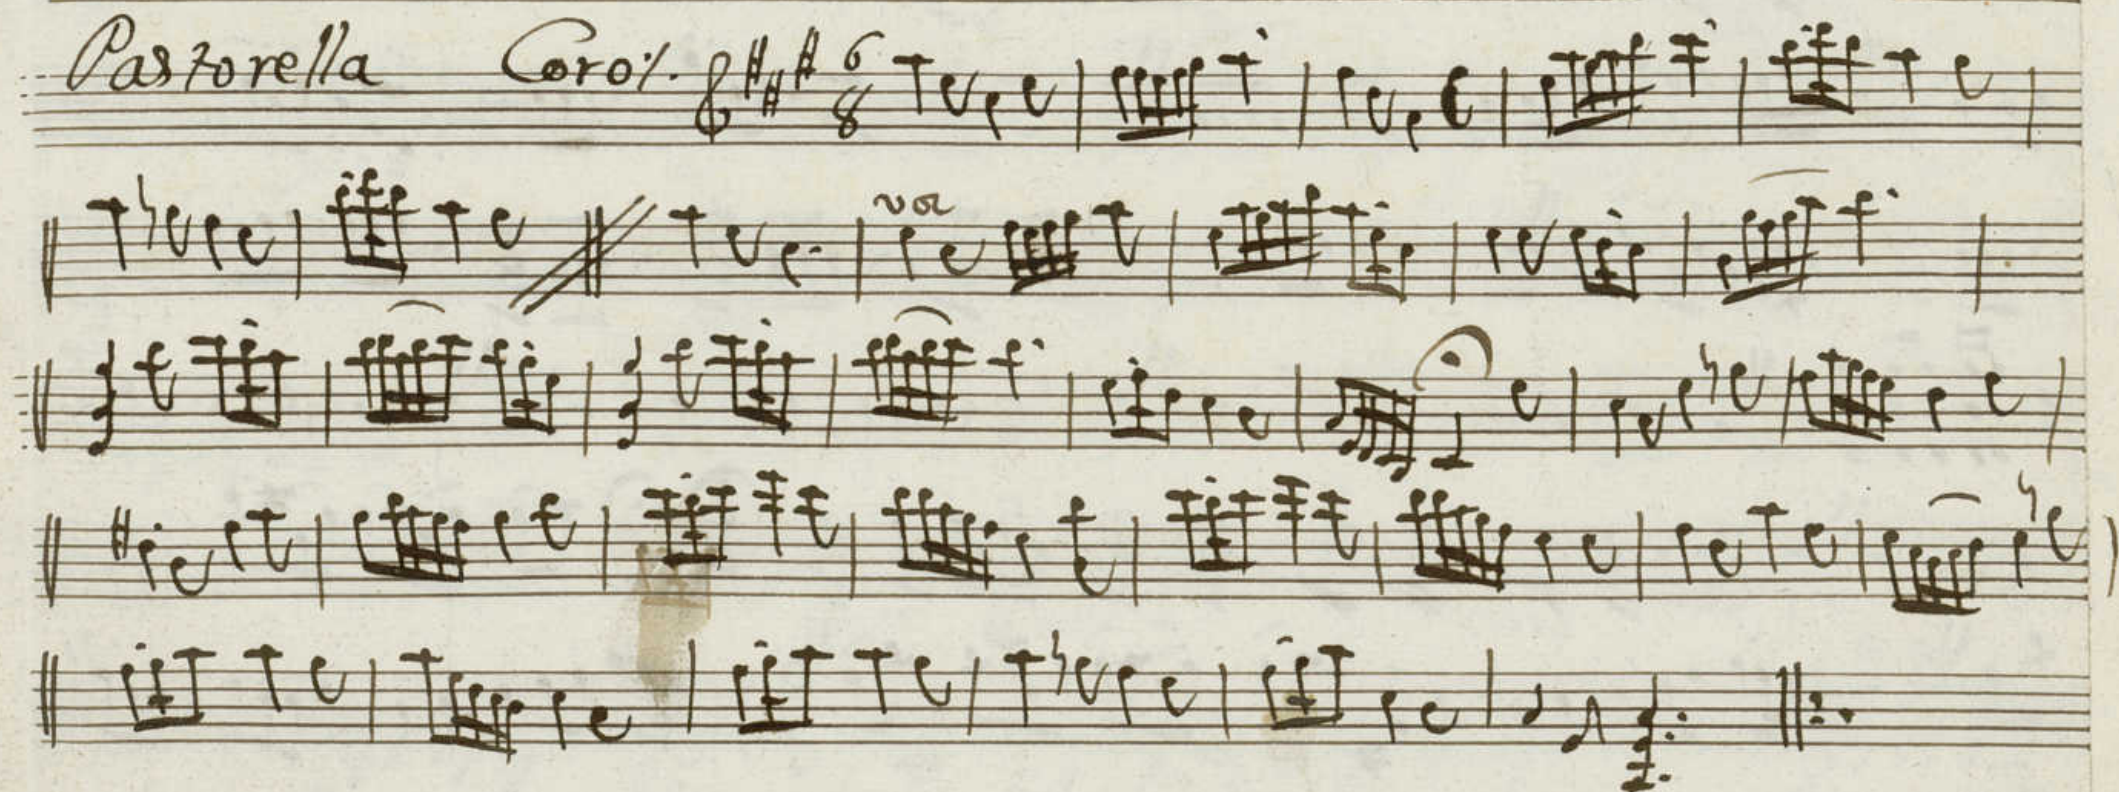 Pastorella Coro 6
8